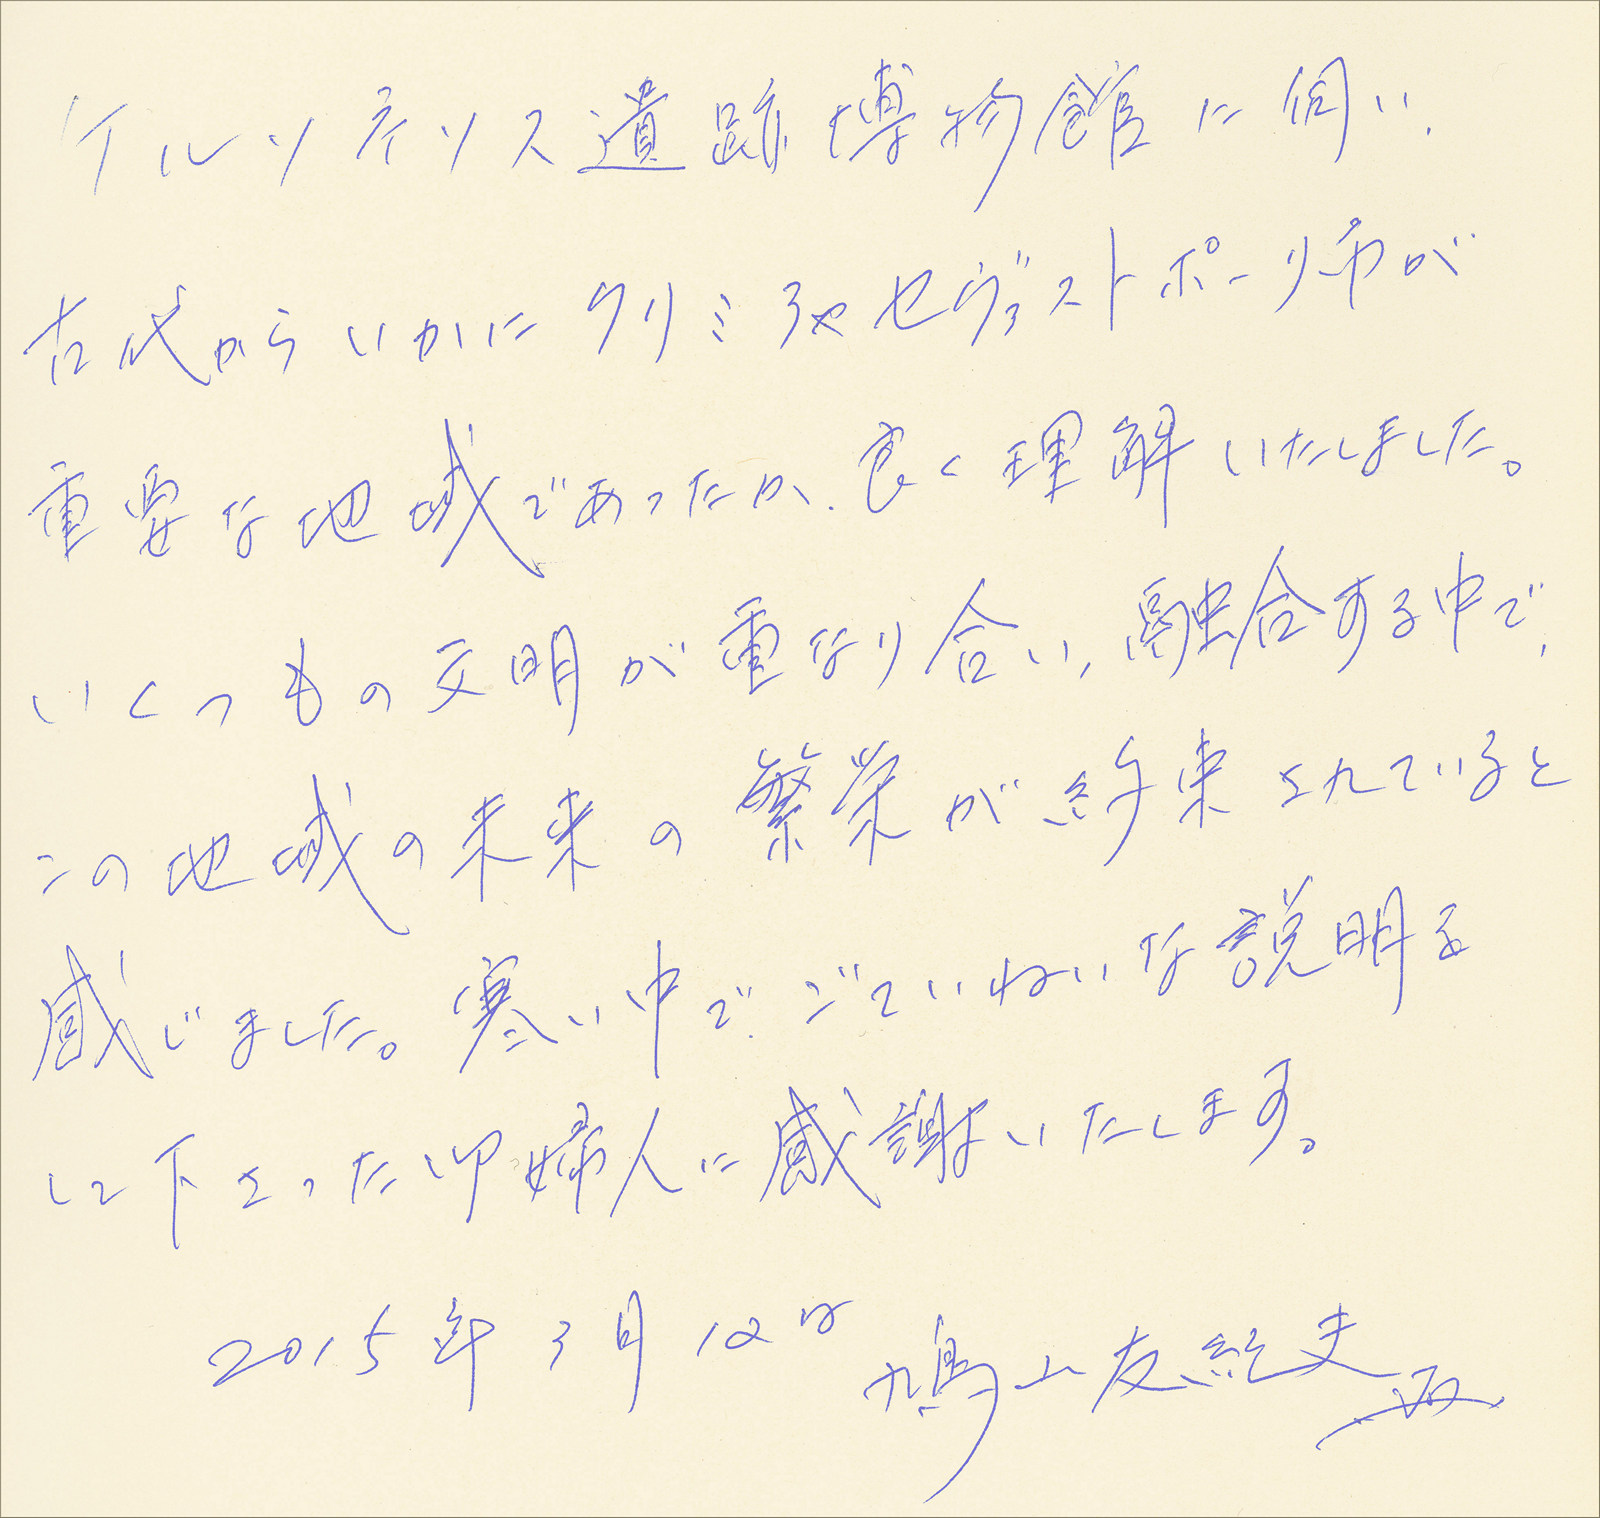 ケルソネソス遺跡博物館に伺い、
古代からいかにクリミアやセヴァストポーリ市が
重要な地域であったか、良く理解いたしました。
いくつもの文明が重なり合い、融合する中で、
この地域の未来の繁栄が約束されていると
感じました。寒い中で、ごていねいな説明を
して下さった御婦人に感謝いたします。
2015年3月12日 鳩山友紀夫